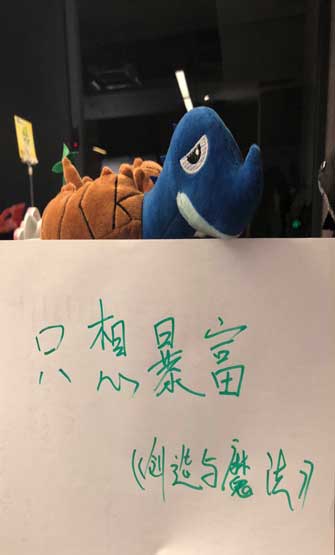 只想暴富
《创造与魔法》